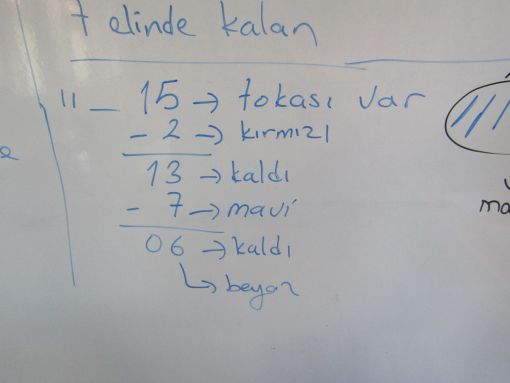 7 elinde kalan
11 _ 15 → tokası var
- 2 → kırmızı
13 → kaldı
- 7 → mavi
06 → kaldı
↳ beyaz
ma